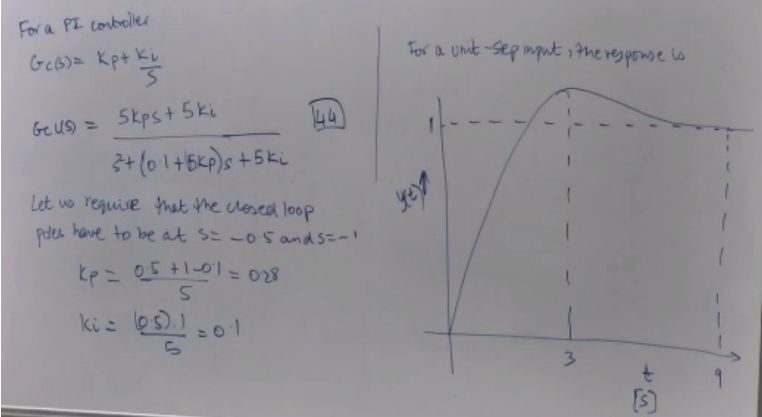 For a PI controller
Gc(s) = Kp + Ki/S
GCL(S) = 5Kps + 5Ki / s²+(0.1+5Kp)s+5Ki
44
Let us require that the closed loop
poles have to be at S= -0.5 and s=-1
Kp = 0.5+1-0.1/5 = 0.28
Ki = (0.5).1/5 = 0.1
For a unit-step input, the response is
1
y(t)
3
9
t
[S]